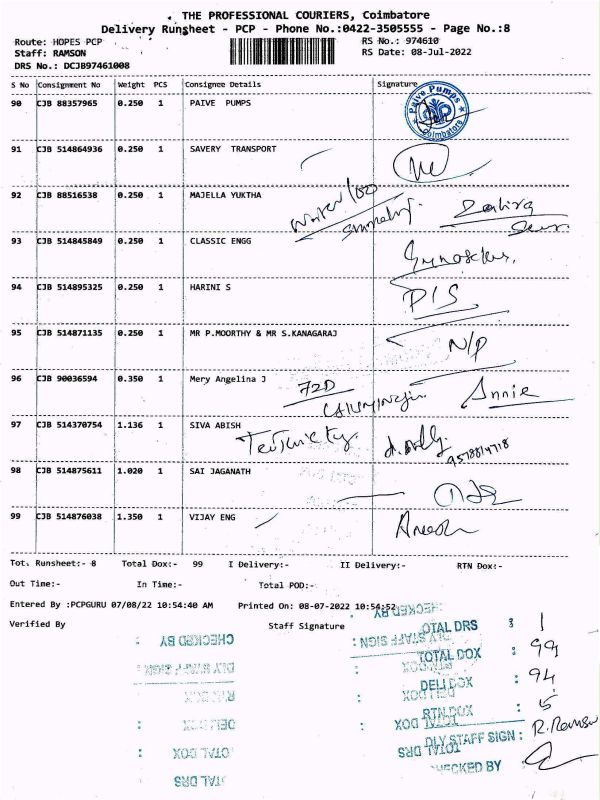 THE PROFESSIONAL COURIERS, Coimbatore
Delivery Runsheet - PCP - Phone No.:0422-3505555 - Page No.:8
Route: HOPES PCP RS No.: 974610
Staff: RAMSON RS Date: 08-Jul-2022
DRS No.: DCJB97461008
S No Consignment No Weight PCS Consignee Details Signature
90 CJB 88357965 0.250 1 PAIVE PUMPS
Paive Pumps Coimbatore
91 CJB 514864936 0.250 1 SAVERY TRANSPORT
92 CJB 88516538 0.250 1 MAJELLA YUKTHA
93 CJB 514845849 0.250 1 CLASSIC ENGG
94 CJB 514895325 0.250 1 HARINI S
D/S
95 CJB 514871135 0.250 1 MR P.MOORTHY & MR S.KANAGARAJ
N/P
96 CJB 90036594 0.350 1 Mery Angelina J 72D Annie
97 CJB 514370754 1.136 1 SIVA ABISH
98 CJB 514875611 1.020 1 SAI JAGANATH
99 CJB 514876038 1.350 1 VIJAY ENG
Tot. Runsheet:- 8 Total Dox:- 99 I Delivery:- II Delivery:- RTN Dox:-
Out Time:- In Time:- Total POD:-
Entered By :PCPGURU 07/08/22 10:54:40 AM Printed On: 08-07-2022 10:54:52
Verified By Staff Signature
TOTAL DRS : 1
TOTAL DOX : 99
DELI DOX : 94
RTN DOX : 5
DLY STAFF SIGN : R. Ramson
CHECKED BY